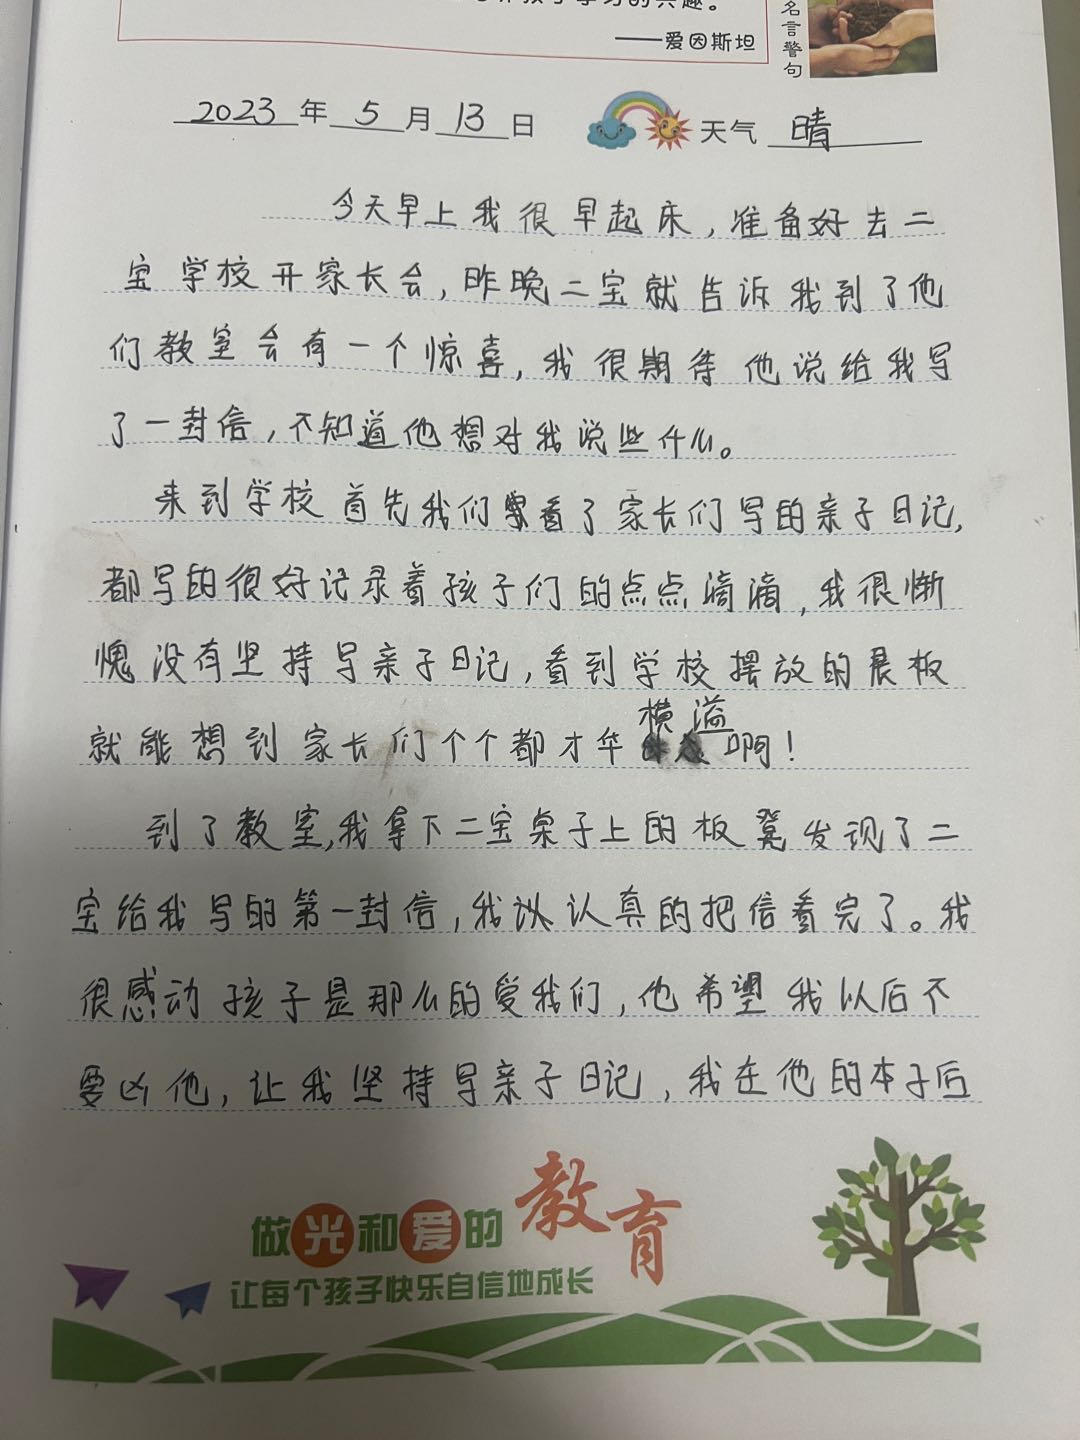 学习的兴趣。
——爱因斯坦
名言警句
2023年5月13日 天气 晴
今天早上我很早起床,准备好去二
宝学校开家长会,昨晚二宝就告诉我到了他
们教室会有一个惊喜,我很期待他说给我写
了一封信,不知道他想对我说些什么。
来到学校首先我们观看了家长们写的亲子日记,
都写的很好记录着孩子们的点点滴滴,我很惭
愧没有坚持写亲子日记,看到学校摆放的展板
就能想到家长们个个都才华横溢啊!
到了教室,我拿下二宝桌子上的板凳发现了二
宝给我写的第一封信,我认认真真的把信看完了。我
很感动孩子是那么的爱我们,他希望我以后不
要凶他,让我坚持写亲子日记,我在他的本子后
做光和爱的教育
让每个孩子快乐自信地成长